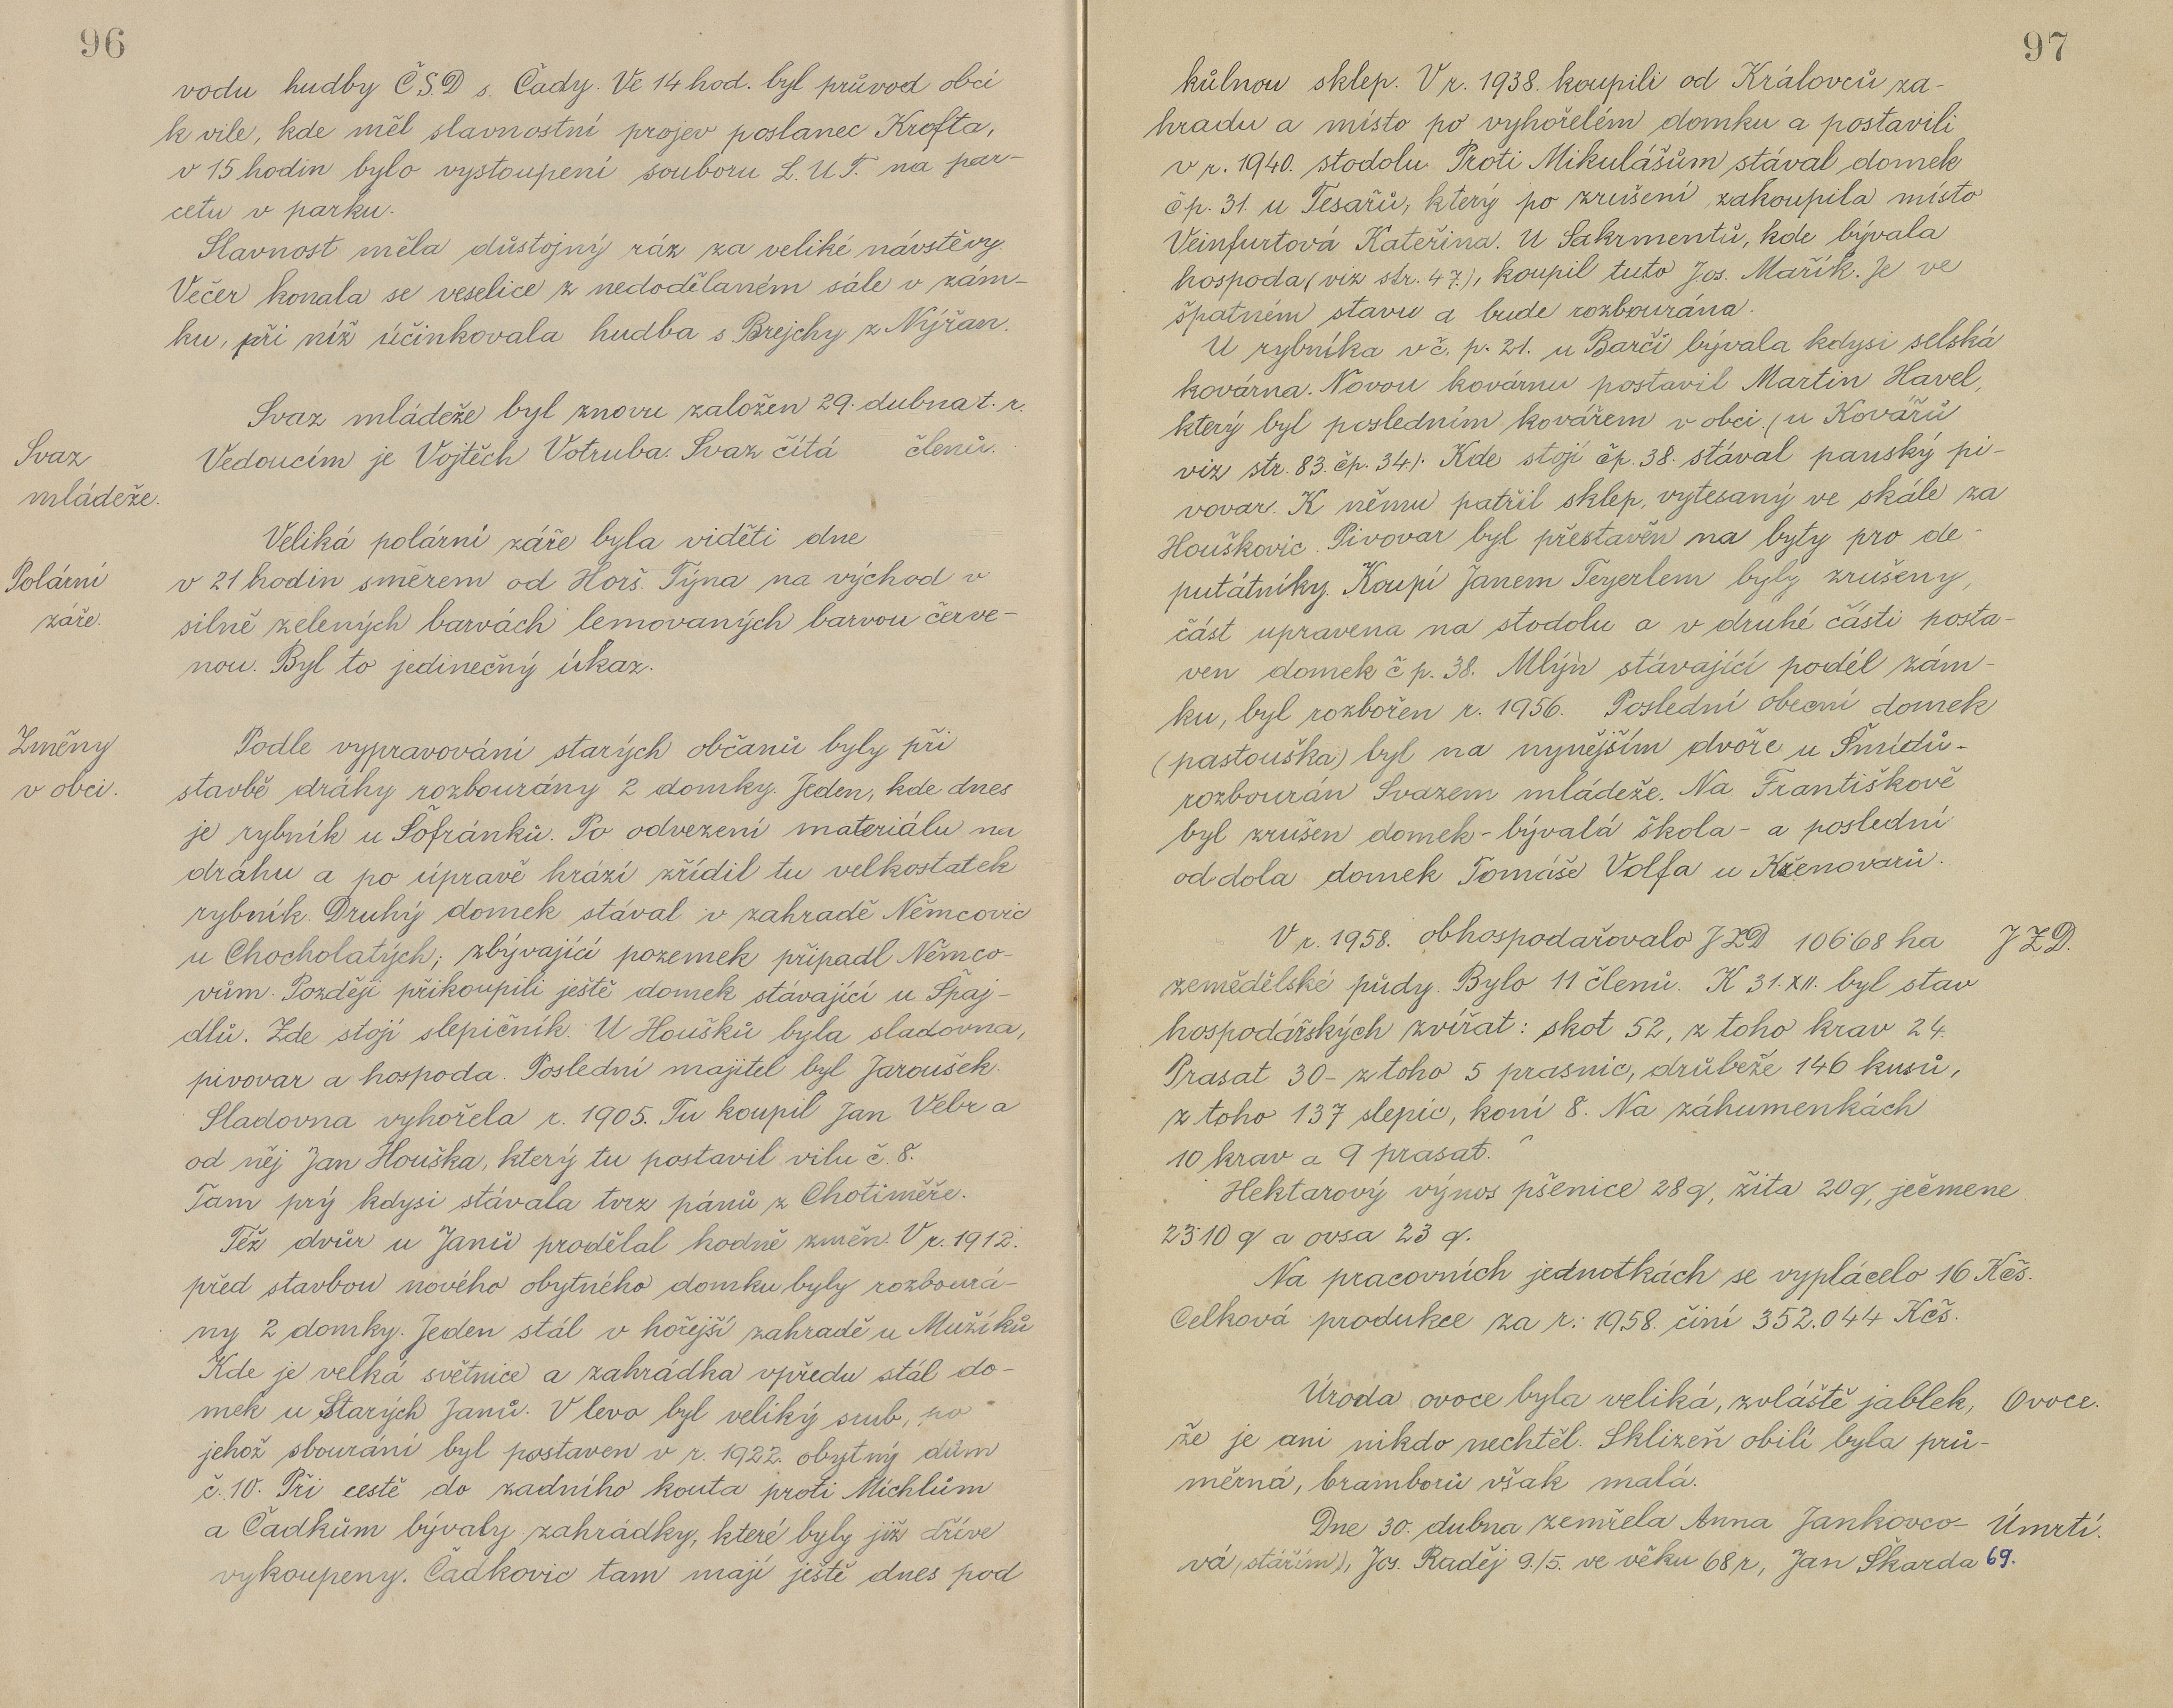 96
vodu hudby ČSD s. Čady. Ve 14 hod. byl průvod obcí
k vile, kde měl slavnostní projev poslanec Krofta,
v 15 hodin bylo vystoupení souboru L.U.T. na par-
cetu v parku.
Slavnost měla důstojný ráz za veliké návstěvy.
Večer konala se veselice z nedodělaném sále v zám-
ku, při níž účinkovala hudba s Brejchy z Nýřan.
Svaz mládeže byl znovu založen 29. dubna t. r.
Svaz
mládeže.
Vedoucím je Vojtěch Votruba. Svaz čítá členů.
Veliká polární záře byla viděti dne
Polární
záře.
v 21 hodin směrem od Horš. Týna na východ v
silně zelených barvách lemovaných barvou červe-
nou. Byl to jedinečný úkaz.
Změny
v obci.
Podle vypravování starých občanů byly při
stavbě dráhy rozbourány 2 domky. Jeden, kde dnes
je rybník u Šofránků. Po odvezení materiálu na
dráhu a po úpravě hrází zřídil tu velkostatek
rybník. Druhý domek stával v zahradě Němcovic
u Chocholatých; zbývající pozemek připadl Němco-
vům. Později přikoupili ještě domek stávající u Špaj-
dlů. Zde stojí slepičník. U Houšků byla sladovna,
pivovar a hospoda. Poslední majitel byl Jaroušek.
Sladovna vyhořela r. 1905. Tu koupil Jan Vébr a
od něj Jan Houška, který tu postavil vilu č. 8.
Tam prý kdysi stávala tvrz pánů z Chotiměře.
Též dvůr u Janů prodělal hodně změn. V r. 1912.
před stavbou nového obytného domku byly rozbourá-
ny 2 domky. Jeden stál v hořejší zahradě u Mužíků
Kde je velká světnice a zahrádka vpředu stál do-
mek u Starých Janů. V levo byl veliký srub, po
jehož sbourání byl postaven v r. 1922. obytný dům
č. 10. Při cestě do zadního kouta proti Michlům
a Čadkům bývaly zahrádky, které byly již dříve
vykoupeny. Čadkovic tam mají ještě dnes pod
97
kůlnou sklep. V r. 1938. koupili od Královců za-
hradu a místo po vyhořelém domku a postavili
v r. 1940. stodolu. Proti Mikulášům stával domek
čp. 31. u Tesařů, který po zrušení zakoupila místo
Veinfurtová Kateřina. U Sakrmentů, kde bývala
hospoda (viz str. 47.), koupil tuto Jos. Mařík. Je ve
špatném stavu a bude rozbourána.
U rybníka v č. p. 21. u Barčí bývala kdysi selská
kovárna. Novou kovárnu postavil Martin Havel,
který byl posledním kovářem v obci. (u Kovářů
viz str. 83. čp. 34). Kde stojí čp. 38. stával panský pi-
vovar. K němu patřil sklep, vytesaný ve skále za
Houškovic. Pivovar byl přestavěn na byty pro de-
putátníky. Koupí Janem Teyerlem byly zrušeny,
část upravena na stodolu a v druhé části posta-
ven domek č p. 38. Mlýn stávající podél zám-
ku, byl rozbořen r. 1956. Poslední obecní domek
(pastouška) byl na nynějším dvoře u Šmídů-
rozbourán Svazem mládeže. Na Františkově
byl zrušen domek - bývalá škola - a poslední
od dola domek Tomáše Volfa u Křenovarů.
V r. 1958. obhospodařovalo JZD 106'68 ha
JZD.
zemědělské půdy. Bylo 11 členů. K 31. XII. byl stav
hospodářských zvířat: skot 52, z toho krav 24.
Prasat 30 - z toho 5 prasnic, drůbeže 146 kusů,
z toho 137 slepic, koní 8. Na záhumenkách
10 krav a 9 prasat.
Hektarový výnos pšenice 28 q, žita 20 q, ječmene
23'10 q a ovsa 23 q.
Na pracovních jednotkách se vyplácelo 16 Kčs.
Celková produkce za r. 1958. činí 352.044 Kčs.
Úroda ovoce byla veliká, zvláště jablek,
Ovoce.
že je ani nikdo nechtěl. Sklizeň obilí byla prů-
měrná, bramborů však malá.
Dne 30. dubna zemřela Anna Jankovco-
Úmrtí.
vá (stářím), Jos. Raděj 9./5. ve věku 68 r, Jan Škarda 69.